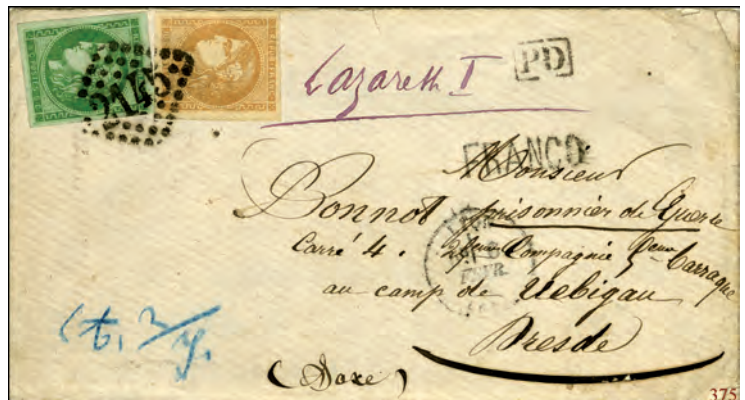 Lazareth I
PD
FRANCO
Monsieur
Bonnot prisonnier de Guerre
Carré 4. Compagnie Barraque
au camp de Uebigau
Dresde
(Saxe)
FEVR.
375